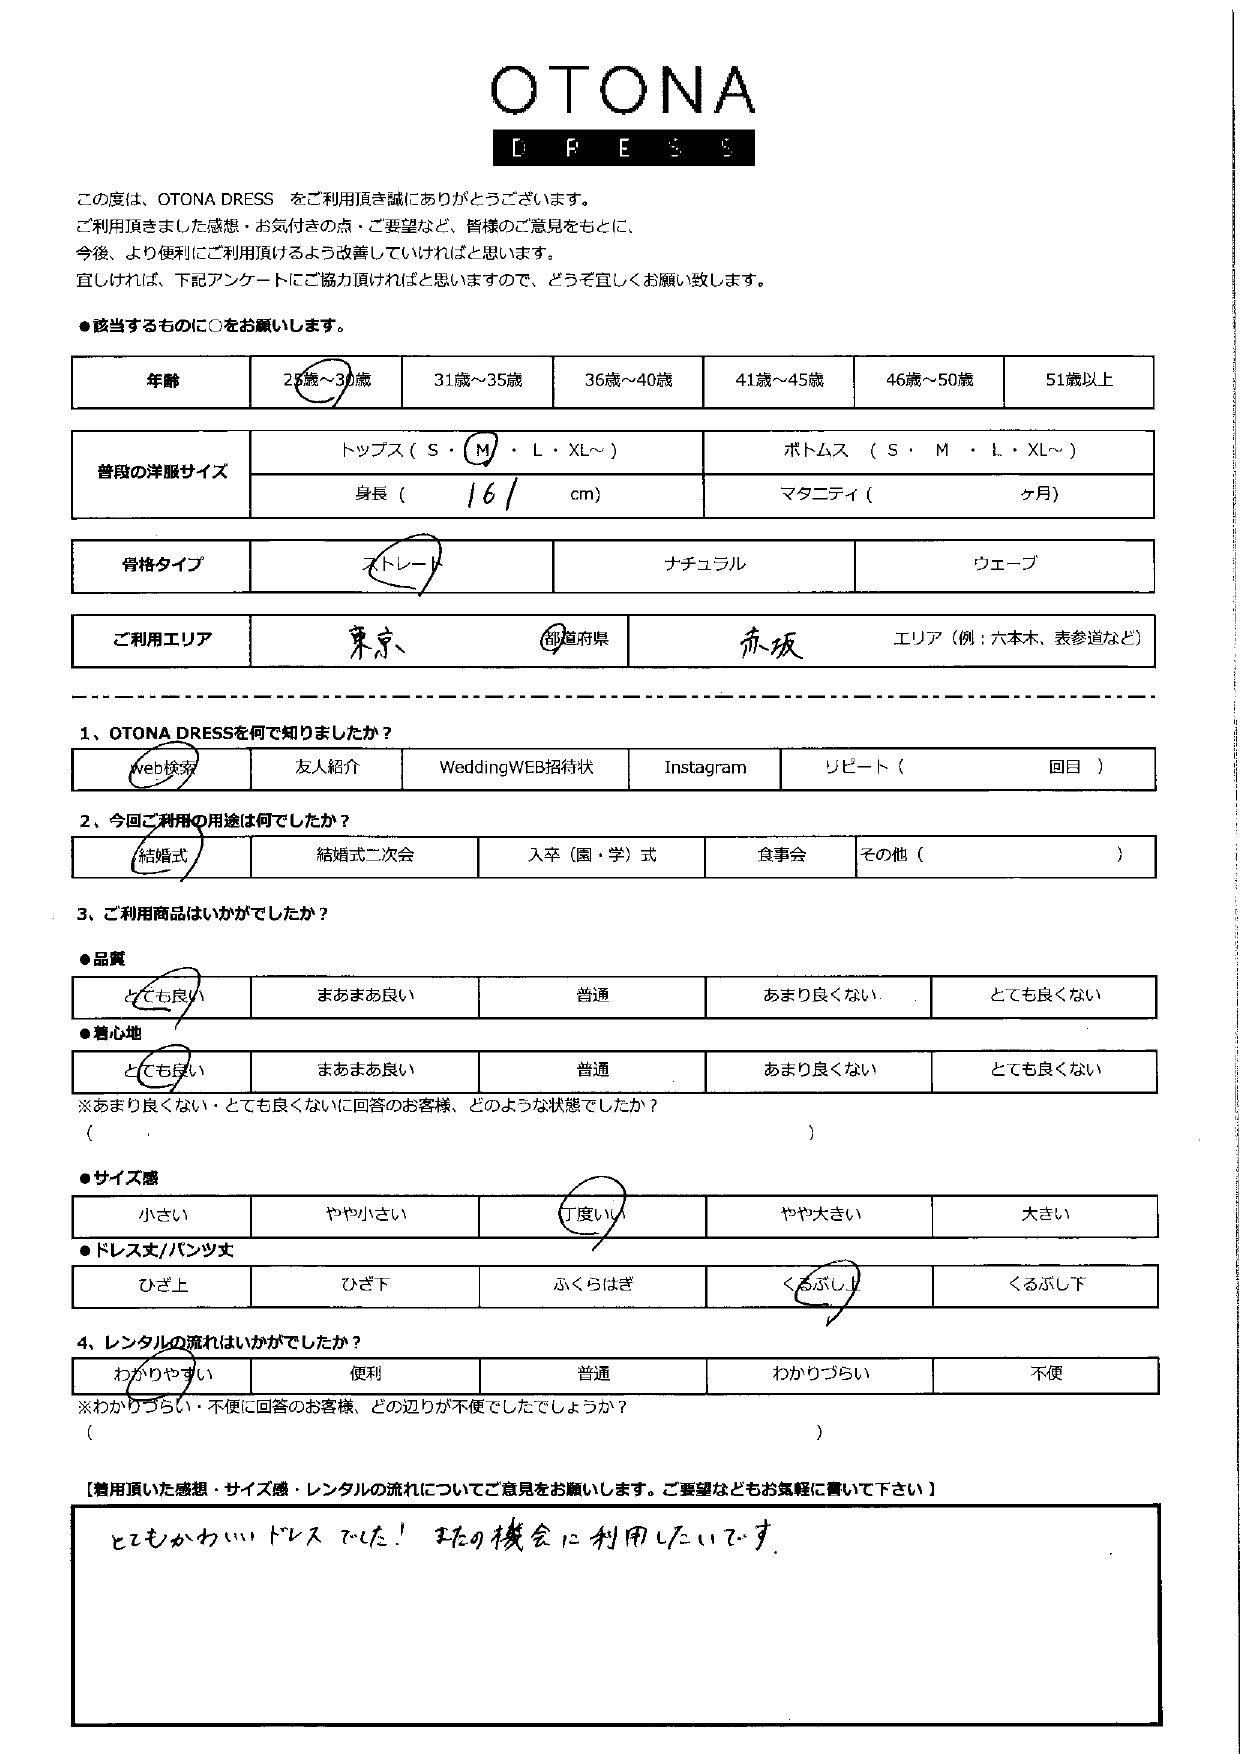 OTONA
DRESS
この度は、OTONA DRESS をご利用頂き誠にありがとうございます。
ご利用頂きました感想・お気付きの点・ご要望など、皆様のご意見をもとに、
今後、より便利にご利用頂けるよう改善していければと思います。
宜しければ、下記アンケートにご協力頂ければと思いますので、どうぞ宜しくお願い致します。
●該当するものに○をお願いします。
年齢 25歳～30歳 31歳～35歳 36歳～40歳 41歳～45歳 46歳～50歳 51歳以上
普段の洋服サイズ トップス ( S ・ M ・ L ・ XL～ ) ボトムス ( S ・ M ・ L ・ XL～ )
身長 ( 161 cm) マタニティ ( ヶ月)
骨格タイプ ストレート ナチュラル ウェーブ
ご利用エリア 東京 都道府県 赤坂 エリア（例：六本木、表参道など）
1、OTONA DRESSを何で知りましたか？
web検索 友人紹介 WeddingWEB招待状 Instagram リピート（ 回目 ）
2、今回ご利用の用途は何でしたか？
結婚式 結婚式二次会 入卒（園・学）式 食事会 その他（ ）
3、ご利用商品はいかがでしたか？
●品質
とても良い まあまあ良い 普通 あまり良くない とても良くない
●着心地
とても良い まあまあ良い 普通 あまり良くない とても良くない
※あまり良くない・とても良くないに回答のお客様、どのような状態でしたか？
（ ）
●サイズ感
小さい やや小さい 丁度いい やや大きい 大きい
●ドレス丈/パンツ丈
ひざ上 ひざ下 ふくらはぎ くるぶし上 くるぶし下
4、レンタルの流れはいかがでしたか？
わかりやすい 便利 普通 わかりづらい 不便
※わかりづらい・不便に回答のお客様、どの辺りが不便でしたでしょうか？
（ ）
【着用頂いた感想・サイズ感・レンタルの流れについてご意見をお願いします。ご要望などもお気軽に書いて下さい】
とてもかわいいドレスでした！ またの機会に利用したいです.